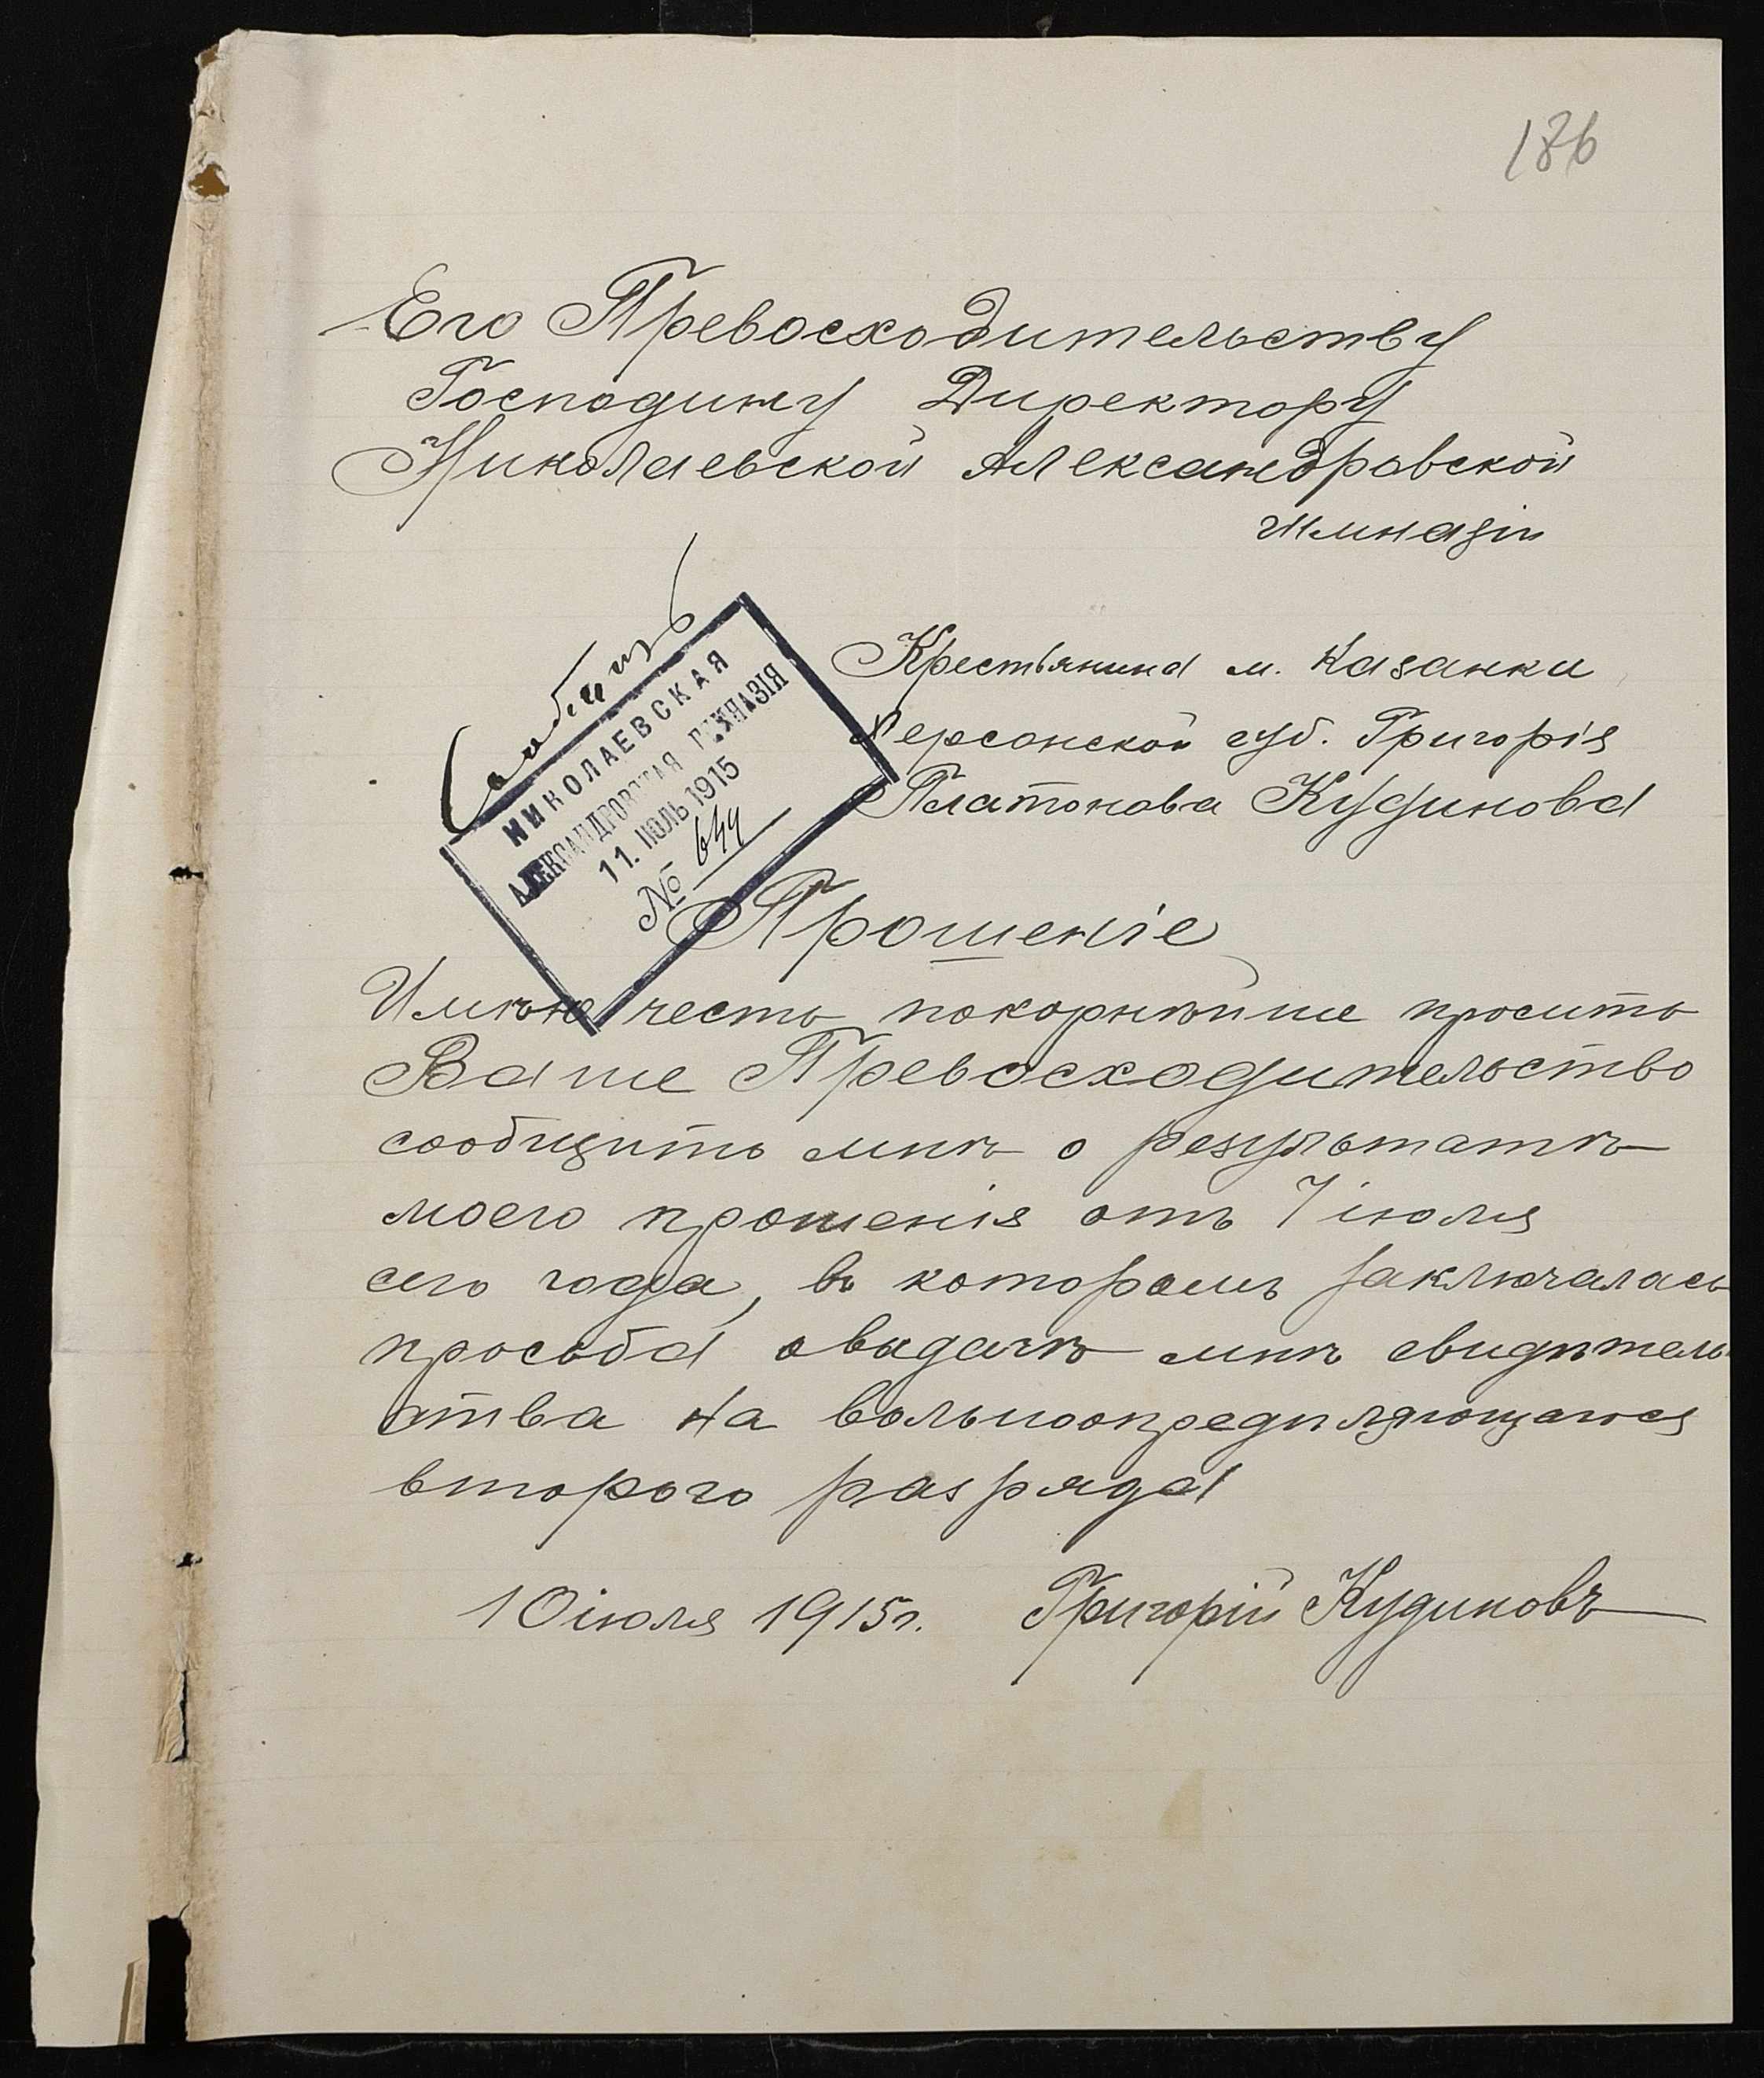 186
Его Превосходительству
Господину Директору
Николаевской Александровской
гимназіи
Крестьянина м. Казанки
Херсонской губ. Григорія
Платонова Кудинова
НИКОЛАЕВСКАЯ
АЛЕКСАНДРОВСКАЯ ГИМНАЗІЯ
11. ІЮЛЬ 1915
№ 644
Прошеніе
Имѣю честь покорнѣйше просить
Ваше Превосходительство
сообщить мнѣ о результатѣ
моего прошенія отъ 7 іюля
сего года, въ которомъ заключалась
просьба о выдачѣ мнѣ свидѣтель
ства на вольноопредѣляющагося
второго разряда
10 іюля 1915 г. Григорій Кудиновъ